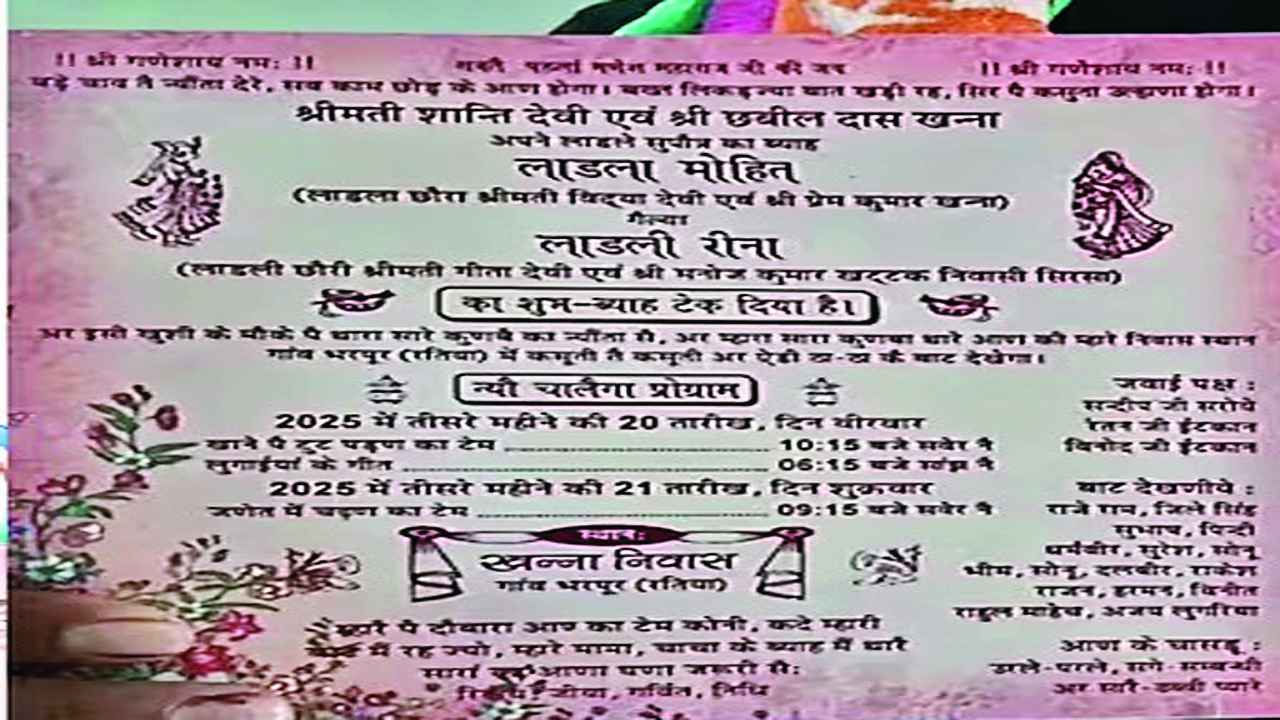 !! श्री गणेशाय नमः !! सबतै पहलां गणेश महाराज जी की जय !! श्री गणेशाय नमः !!
बड़े चाव तै न्यौंता देरे, सब काम छोड़ के आणा होगा। बखत लिकड़ज्या बात खड़ी रह, सिर पै कसुता उल्हाणा होगा।
श्रीमती शान्ति देवी एवं श्री छबील दास खन्ना
अपने लाडले सुपौत्र का ब्याह
लाडला मोहित
(लाडला छौरा श्रीमती विद्या देवी एवं श्री प्रेम कुमार खन्ना)
गैल्या
लाडली रीना
(लाडली छौरी श्रीमती गीता देवी एवं श्री मनोज कुमार खट्टक निवासी सिरसा)
का शुभ-ब्याह टेक दिया है।
अर इसी खुशी के मौके पै थारा सारे कुणबे का न्यौंता सै, अर म्हारा सारा कुणबा थारे आण की म्हारे निवास स्थान
गांव भरपूर (रतिया) में कसुती तै कसुती अर ऐडी ठा-ठा कै बाट देखेगा।
न्यौ चालैगा प्रोग्राम
2025 में तीसरे महीने की 20 तारीख, दिन वीरवार
खाने पै टूट पड़ण का टेम 10:15 बजे सवेर नै
लुगाईयां के गीत 06:15 बजे सांझ नै
2025 में तीसरे महीने की 21 तारीख, दिन शुक्रवार
जणेत में चढ़ण का टेम 09:15 बजे सवेर नै
स्थान:
खन्ना निवास
गांव भरपूर (रतिया)
म्हारै पै दौबारा आण का टेम कोनी, कदे म्हारी
में रह ज्यो, म्हारे मामा, चाचा के ब्याह में थारै
आणा घणा जरूरी सै:
जीया, गर्वित, निधि
जवाई पक्ष :
सन्दीप जी सरोये
रतन जी ईटकान
विनोद जी ईटकान
बाट देखणीये :
राजे राम, जिले सिंह
सुभाष, पिन्दी
धर्मबीर, सुरेश, सोनू
भीम, सोनू, दलबीर, राकेश
राजन, हरमन, विनीत
राहुल माहेच, अजय लुगरिया
आण के चासडू :
उरले-परले, सगे-सम्बन्धी
अर सारै-डब्बी प्यारे